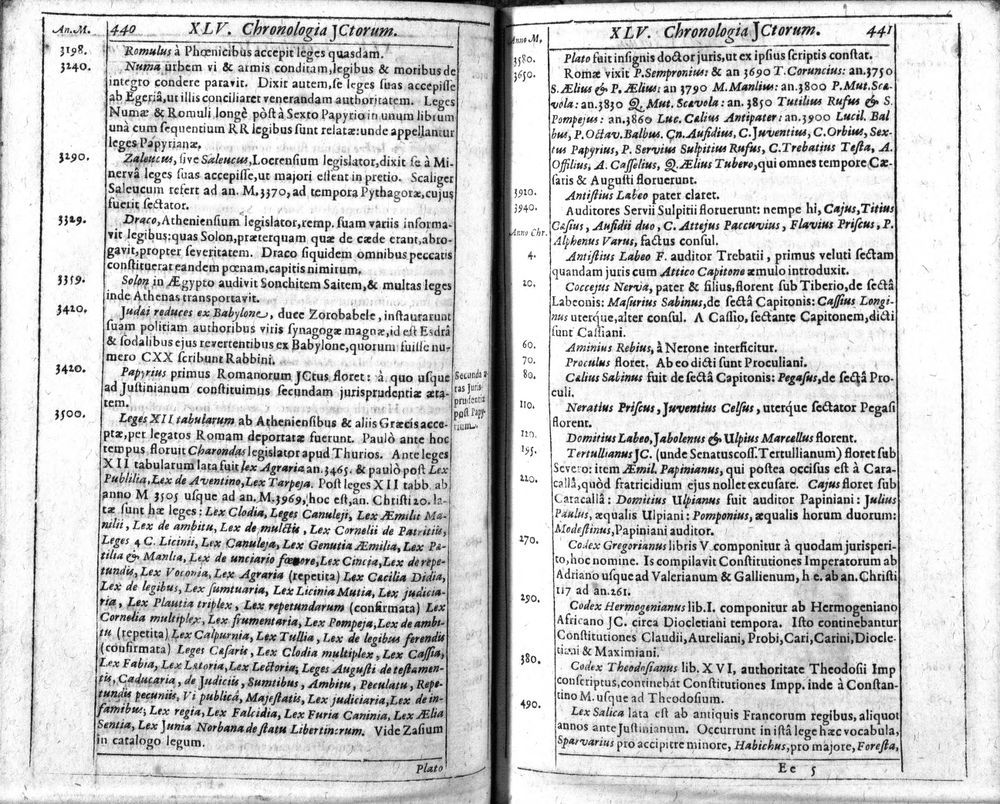 An. M. 440 XLV. Chronologia JCtorum.
3198. Romulus à Phœnicibus accepit leges quasdam.
3240. Numa urbem vi & armis conditam, legibus & moribus de
integro condere paravit. Dixit autem, se leges suas accepisse
ab Egeriâ, ut illis conciliaret venerandam authoritatem. Leges
Numæ & Romuli longè pòst à Sexto Papyrio in unum librum
unà cum sequentium RR legibus sunt relatæ: unde appellantur
leges Papyrianæ.
3290. Zaleucus, sive Saleucus, Locrensium legislator, dixit se à Mi-
nervâ leges suas accepisse, ut majori essent in pretio. Scaliger
Saleucum refert ad an. M. 3370, ad tempora Pythagoræ, cujus
fuerit sectator.
3329. Draco, Atheniensium legislator, remp. suam variis informa-
vit legibus: quas Solon, præterquam quæ de cæde erant, abro-
gavit, propter severitatem. Draco siquidem omnibus peccatis
constituerat eandem pœnam, capitis nimirum.
3359. Solon in Ægypto audivit Sonchitem Saitem, & multas leges
inde Athenas transportavit.
3420. Judæi reduces ex Babylone, duce Zorobabele, instaurarunt
suam politiam authoribus viris synagogæ magnæ, id est Esdrâ
& sodalibus ejus revertentibus ex Babylone, quorum fuisse nu-
mero CXX scribunt Rabbini.
3420. Papyrius primus Romanorum JCtus floret: à quo usque
ad Justinianum constituimus secundam jurisprudentiæ æta-
tem.
Secunda æ-
tas Juris-
prudentiæ
post Papy-
rium.
3500. Leges XII tabularum ab Atheniensibus & aliis Græcis acce-
ptæ, per legatos Romam deportatæ fuerunt. Paulò ante hoc
tempus floruit Charondas legislator apud Thurios. Ante leges
XII tabularum lata fuit lex Agraria an. 3465. & paulò post Lex
Publilia, Lex de Aventino, Lex Tarpeja. Post leges XII tabb. ab
anno M 3505 usque ad an. M. 3969, hoc est, an. Christi 20. la-
tæ sunt hæ leges: Lex Clodia, Leges Canuleji, Lex Æmilii Ma-
nilii, Lex de ambitu, Lex de mulctis, Lex Cornelii de Patritiis,
Leges 4 C. Licinii, Lex Canuleja, Lex Genutia Æmilia, Lex Pa-
tilia & Manlia, Lex de unciario fœnore, Lex Cincia, Lex de repe-
tundis, Lex Voconia, Lex Agraria (repetita) Lex Cæcilia Didia,
Lex de legibus, Lex sumtuaria, Lex Licinia Mutia, Lex judicia-
ria, Lex Plautia triplex, Lex repetundarum (confirmata) Lex
Cornelia multiplex, Lex frumentaria, Lex Pompeja, Lex de ambi-
tu (repetita) Lex Calpurnia, Lex Tullia, Lex de legibus ferendis
(confirmata) Leges Cæsaris, Lex Clodia multiplex, Lex Cassia,
Lex Fabia, Lex Lætoria, Lex Lectoria, Leges Augusti de testamen-
tis, Caducaria, de Judiciis, Sumtibus, Ambitu, Peculatu, Repe-
tundis pecuniis, Vi publicâ, Majestatis, Lex judiciaria, Lex de in-
famibus; Lex regia, Lex Falcidia, Lex Furia Caninia, Lex Ælia
Sentia, Lex Junia Norbana de statu Libertinorum. Vide Zasium
in catalogo legum.
Plato
Anno M. XLV. Chronologia JCtorum. 441
3580. Plato fuit insignis doctor juris, ut ex ipsius scriptis constat.
3650. Romæ vixit P. Sempronius: & an 3690 T. Coruncius: an. 3750
S. Ælius & P. Ælius: an 3790 M. Manlius: an. 3800 P. Mut. Scæ-
vola: an. 3830 Q. Mut. Scævola: an. 3850 Tutilius Rufus & S.
Pompejus: an. 3860 Luc. Cælius Antipater: an. 3900 Lucil. Bal
bus, P. Octav. Balbus. Cn. Aufidius, C. Juventius, C. Orbius, Sex-
tus Papyrius, P. Servius Sulpitius Rufus, C. Trebatius Testa, A.
Offilius, A. Casselius, Q. Ælius Tubero, qui omnes tempore Cæ-
saris & Augusti floruerunt.
3920. Antistius Labeo pater claret.
3940. Auditores Servii Sulpitii floruerunt: nempe hi, Cajus, Titius
Cæsius, Aufidii duo, C. Attejus Paccuvius, Flavius Priscus, P.
Alphenus Varus, factus consul.
Anno Chr.
4. Antistius Labeo F. auditor Trebatii, primus veluti sectam
quandam juris cum Attico Capitone æmulo introduxit.
20. Coccejus Nerva, pater & filius, florent sub Tiberio, de sectâ
Labeonis: Masurius Sabinus, de sectâ Capitonis: Cassius Longi-
nus uterque, alter consul. A Cassio, sectante Capitonem, dicti
sunt Cassiani.
60. Aminius Rebius, à Nerone interficitur.
70. Proculus floret. Ab eo dicti sunt Proculiani.
80. Cælius Sabinus fuit de sectâ Capitonis: Pegasus, de sectâ Pro-
culi.
110. Neratius Priscus, Juventius Celsus, uterque sectator Pegasi
florent.
120. Domitius Labeo, Jabolenus & Ulpius Marcellus florent.
195. Tertullianus JC. (unde Senatuscoss. Tertullianum) floret sub
Severo: item Æmil. Papinianus, qui postea occisus est à Cara-
callâ, quòd fratricidium ejus nollet excusare. Cajus floret sub
220. Caracallâ: Domitius Ulpianus fuit auditor Papiniani: Julius
Paulus, æqualis Ulpiani: Pomponius, æqualis horum duorum:
Modestinus, Papiniani auditor.
270. Codex Gregorianus libris V componitur à quodam jurisperi-
to, hoc nomine. Is compilavit Constitutiones Imperatorum ab
Adriano usque ad Valerianum & Gallienum, h e. ab an. Christi
117 ad an. 261.
290. Codex Hermogenianus lib. I. componitur ab Hermogeniano
Africano JC. circa Diocletiani tempora. Isto continebantur
Constitutiones Claudii, Aureliani, Probi, Cari, Carini, Diocle-
tiani & Maximiani.
380. Codex Theodosianus lib. XVI, authoritate Theodosii Imp
conscriptus, continebât Constitutiones Impp. inde à Constan-
tino M. usque ad Theodosium.
490. Lex Salica lata est ab antiquis Francorum regibus, aliquot
annos ante Justinianum. Occurrunt in istâ lege hæc vocabula,
Sparvarius pro accipitre minore, Habichus, pro majore, Foresta,
Ee 5